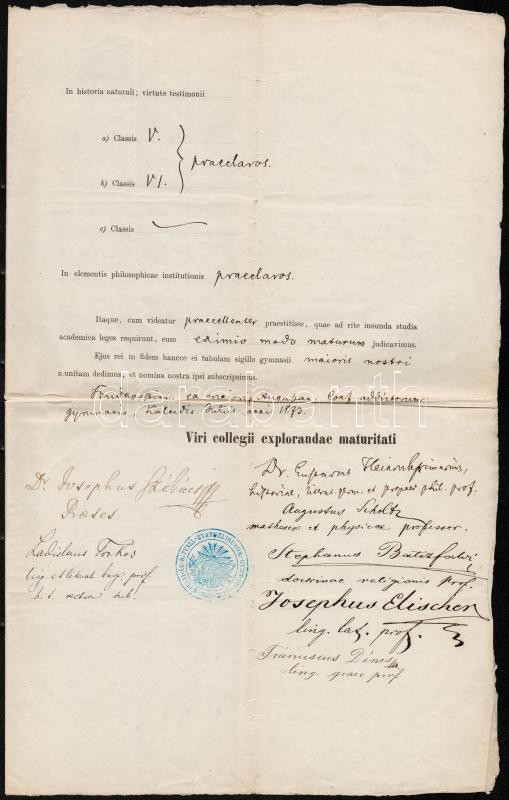 In historia naturali; virtute testimonii
a) Classis V.
praeclaros.
b) Classis VI.
c) Classis
In elementis philosophicae institutionis praeclaros.
Itaque, cum videatur praecellenter praestitisse, quae ad rite ineunda studia
academica leges requirunt, eum eximio modo maturum judicavimus.
Ejus rei in fidem hancce ei tabulam sigillo gymnasii maioris nostri
munitam dedimus et nomina nostra ipsi subscripsimus.
Budapestini, ex maiori August. Conf. addictorum
gymnasio Kalendis Juliis anni 1873.
darabanth
Viri collegii explorandae maturitati
Dr. Josephus Székács
Praeses
Ladislaus Torkos
ling. et literat. hung. prof.
h. t. rector
Dr. Gustavus Heinrich
historiae, prof.
Augustus Scholtz
matheseos et physicae professor.
Stephanus Batizfalvi
doctrinae religionis prof.
Josephus Elischer
ling. lat. prof.
Franciscus Dénes
ling. graec. prof.